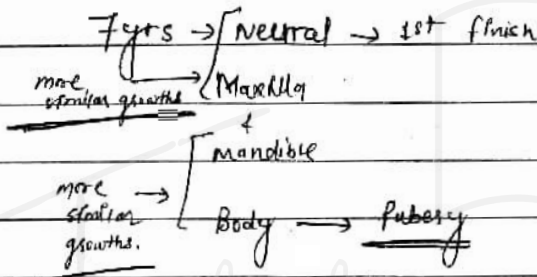 7yrs → Neural → 1st finish
more similar growths → Maxilla
&
Mandible
more similar growths. → Body → Pubery